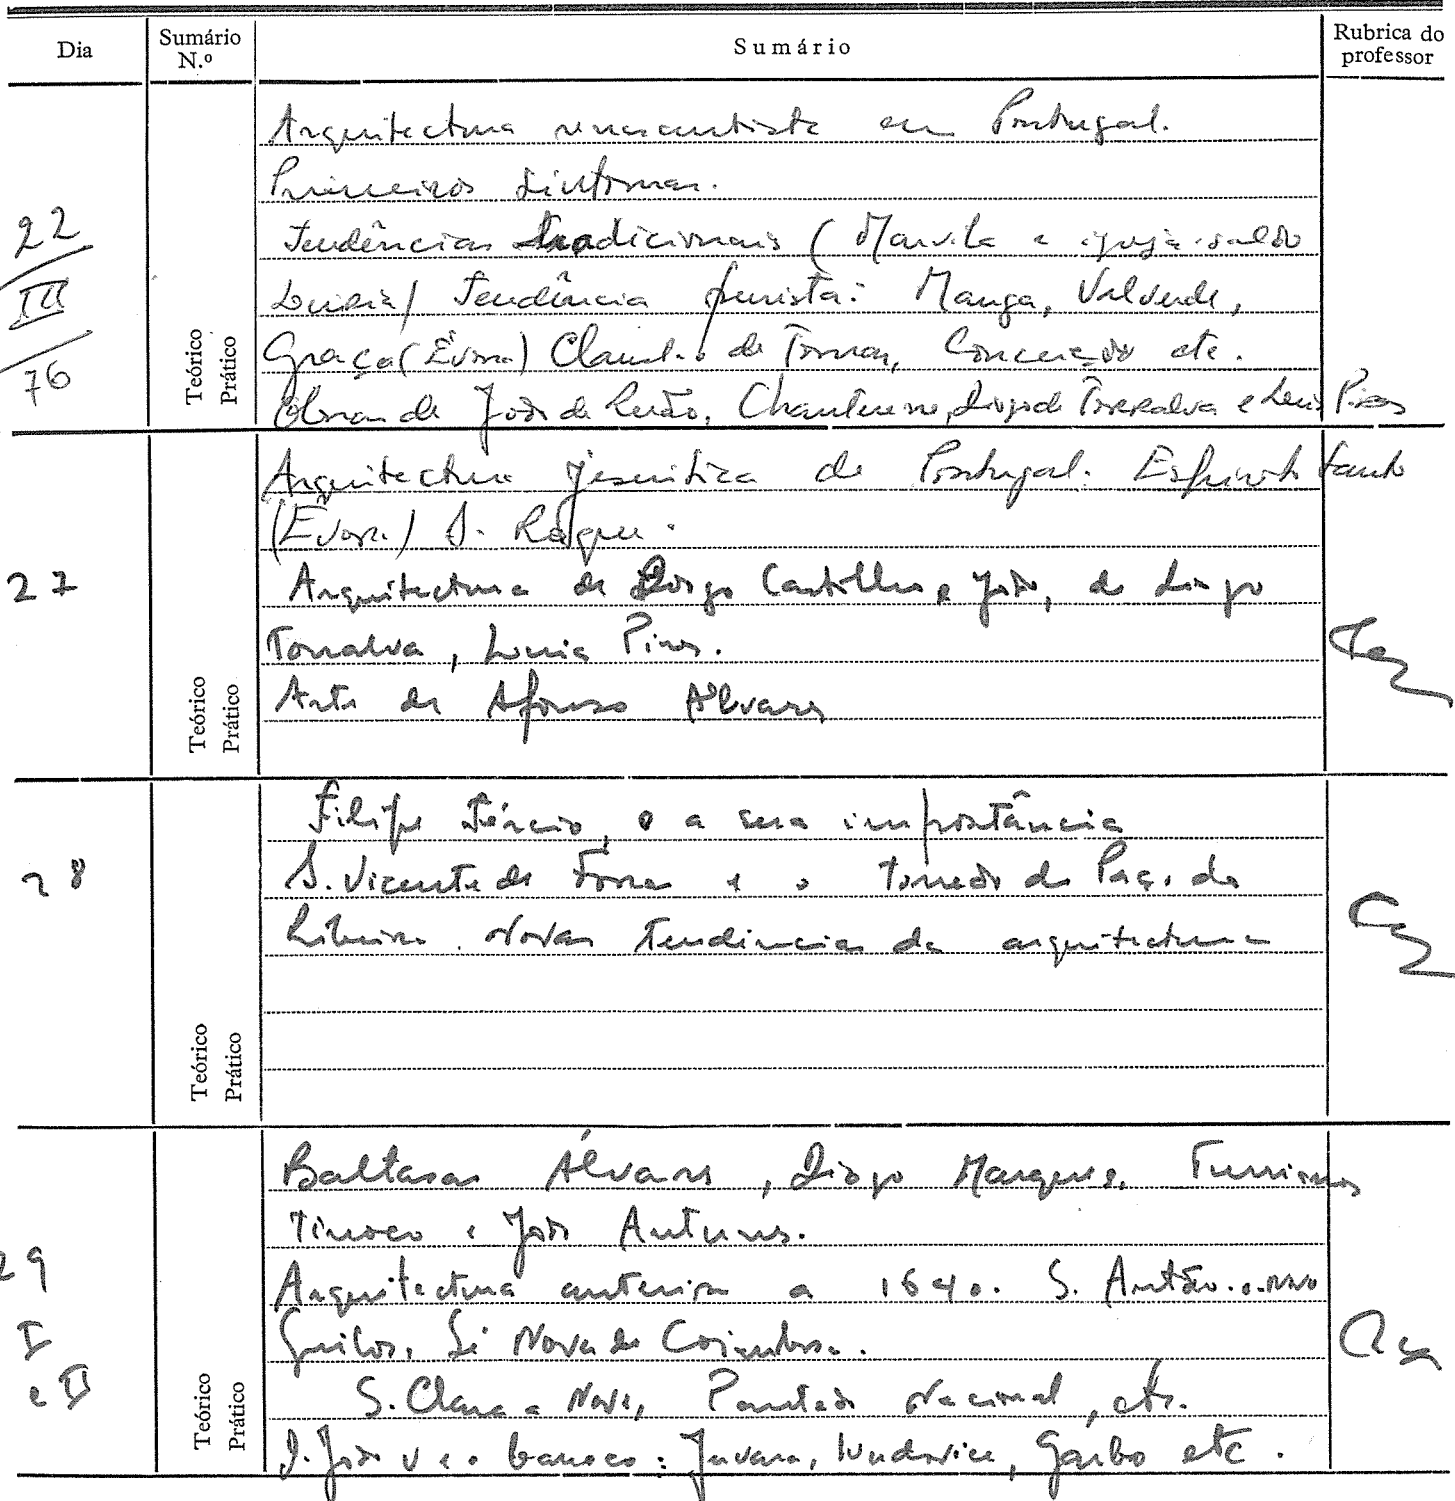 Dia
Sumário N.º
Sumário
Rubrica do professor
22
III
76
Teórico
Prático
Arquitectura renascentista em Portugal.
Primeiros sintomas.
Tendências tradicionais (Marvila e igreja
Tendência purista: Manga, Valverde,
Graça (Évora) Claustro de Tomar, Conceição etc.
Obras de João de Ruão, Chanterene, Diogo de Torralva e Luis Pires
27
Teórico
Prático
Arquitectura jesuitica de Portugal. Espirito Santo
(Évora) S. Roque.
Arquitectura de Diogo Castilho e João, de Diogo
Torralva, Pires.
Arte de Afonso Álvares
28
Teórico
Prático
Filipe Tércio, e a sua importância
S. Vicente de Fora e o torreão do Paço da
Ribeira. Novas tendencias da arquitectura
29
I
e II
Teórico
Prático
Baltasar Álvares, Diogo Marques,
Tinoco e João Antunes.
Arquitectura anterior a 1640. S. Antão-o-novo
Grilos, Sé Nova de Coimbra.
S. Clara a Nova, Panteão Nacional, etc.
D. João V e o barroco: Juvara, Ludovice, Garbo etc.